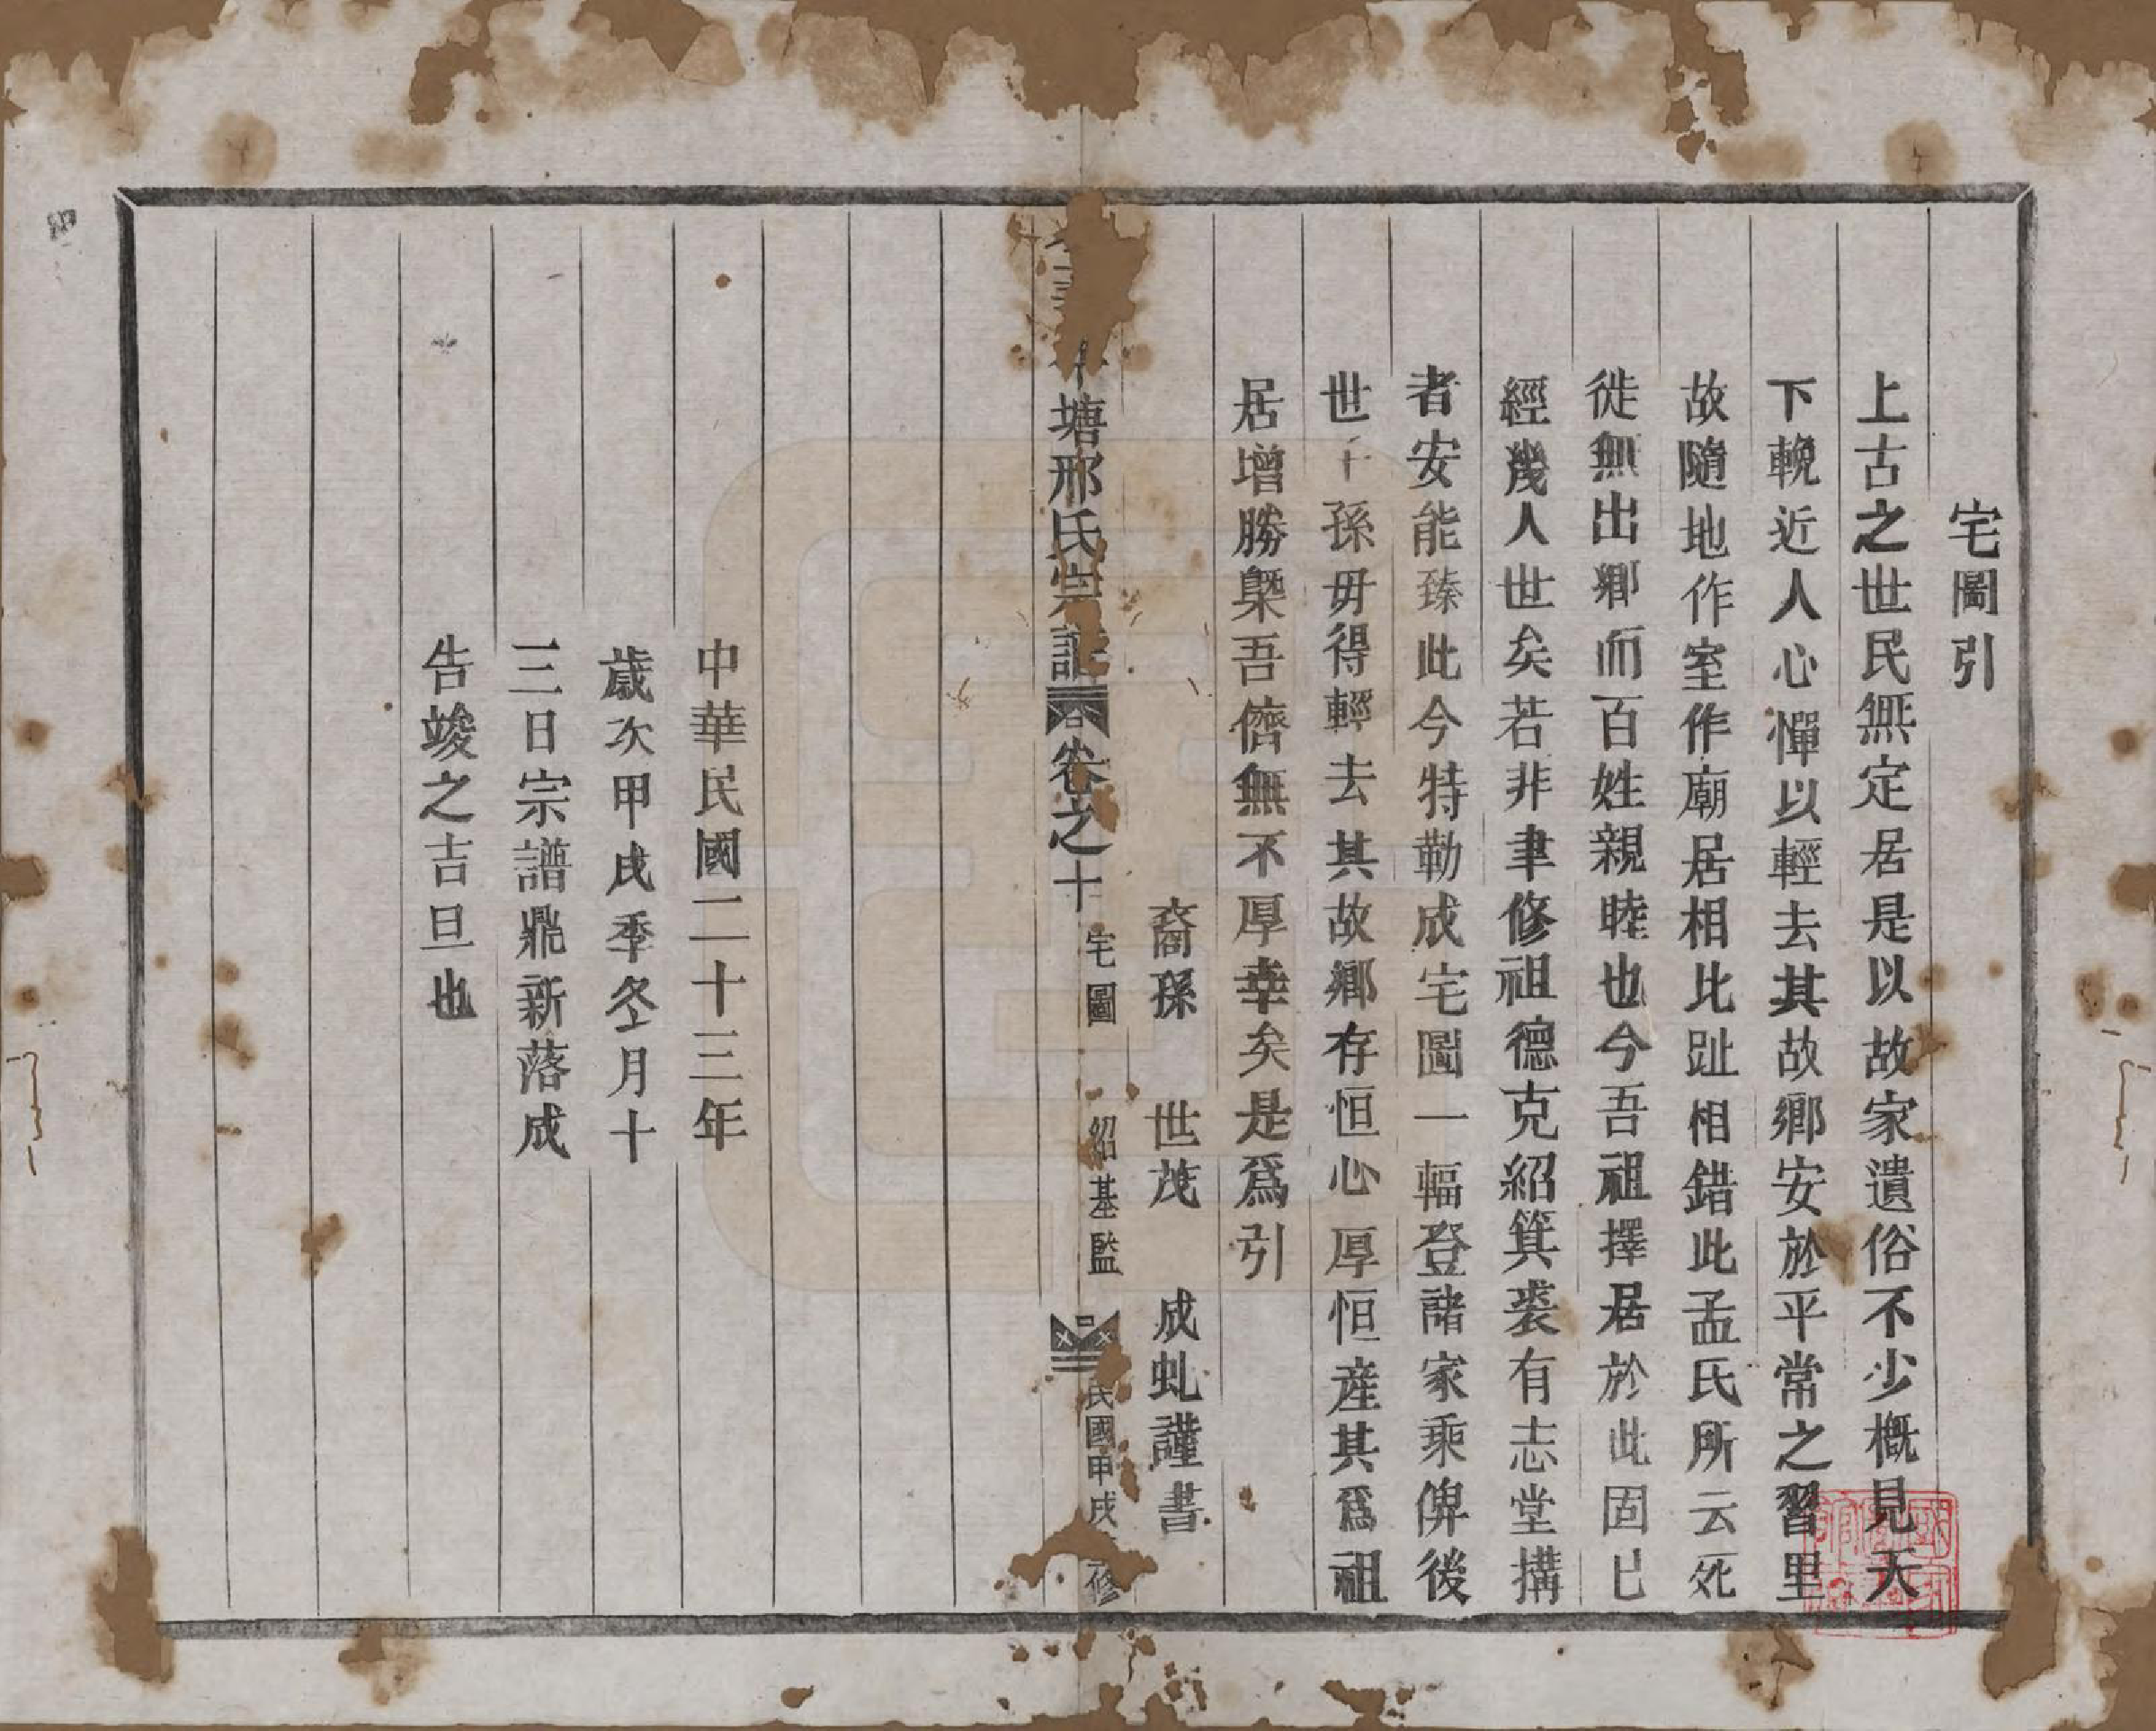 宅圖引
上古之世民無定居是以故家遺俗不少概見天
下輓近人心憚以輕去其故鄉安於平常之習里
故隨地作室作廟居相比趾相錯此孟氏所云死
徙無出鄉而百姓親睦也今吾祖擇居於此固已
經幾人世矣若非聿修祖德克紹箕裘有志堂搆
者安能臻此今特勒成宅圖一輻登諸家乘俾後
世子孫毋得輕去其故鄉存恒心厚恒產其為祖
居增勝槩吾儕無不厚幸矣是為引
裔孫 世茂 成虬謹書
塘邢氏宗譜 卷之十 宅圖 紹基監 民國甲戌 修
中華民國二十三年
歲次甲戌季冬月十
三日宗譜鼎新落成
告竣之吉旦也